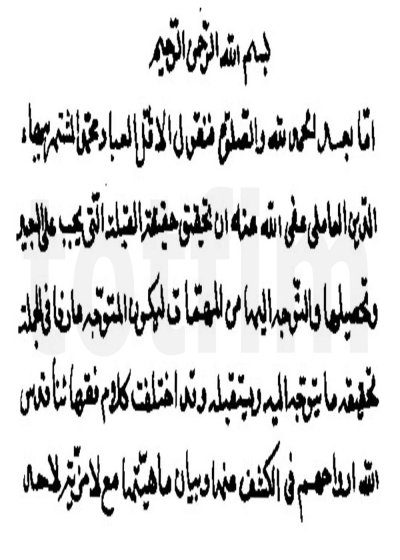 بسم الله الرحمن الرحيم
اما بعد الحمد لله والصلوة فيقول الاقل العباد محمد المشتهر ببهاء
الدين العاملى عفى الله عنه ان تحقيق حقيقة القبلة التى يجب على الجميع
وتحصيلها والتوجه اليها من المهمات ليكون المتوجه عارفا فى الجملة
تحقيقه ما يتوجه اليه ويستقبله وقد اختلفت كلام فقهائنا قدس
الله ارواحهم فى الكشف عنها وبيان ماهيتها مع لا مزية لاحد
totfim